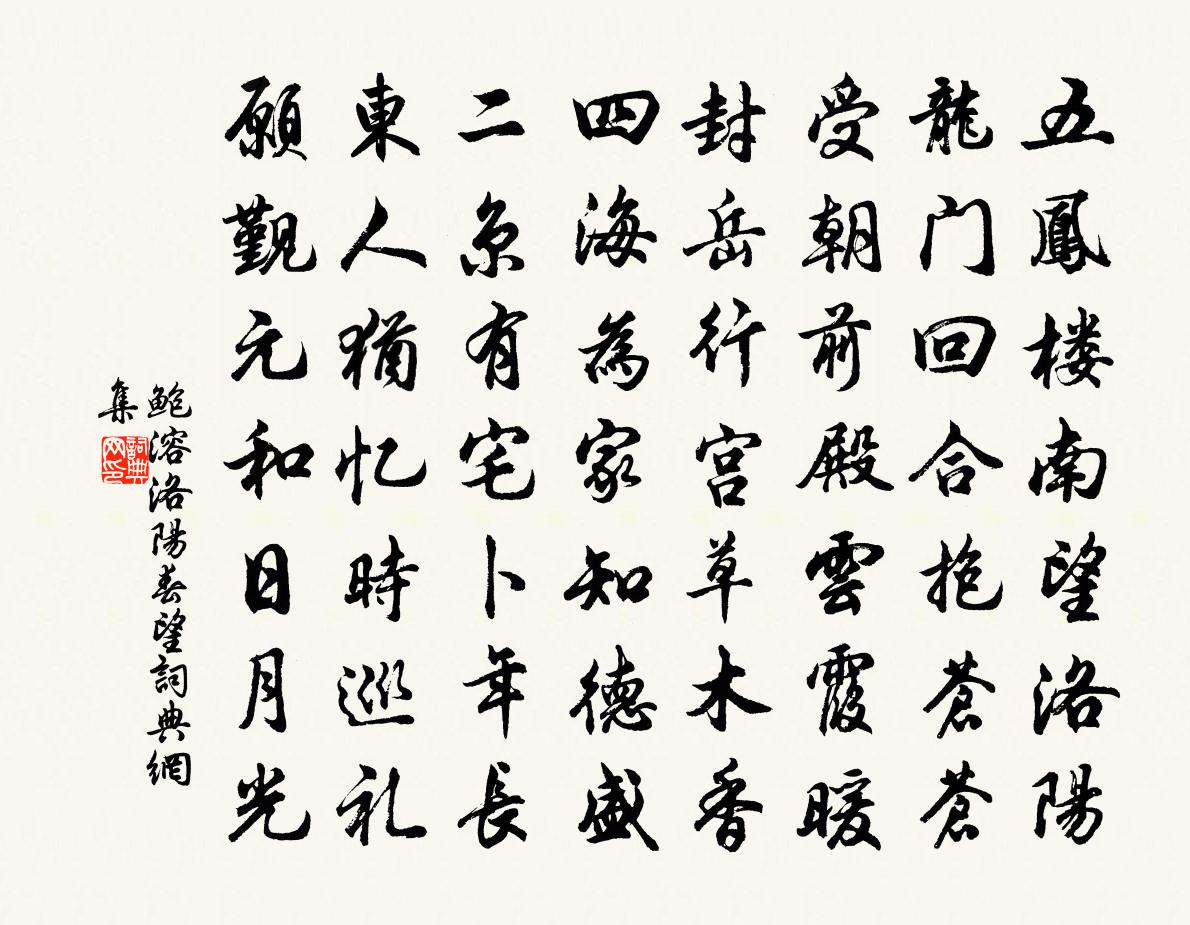 五鳳楼南望洛陽
龍门回合抱蒼蒼
受朝前殿雲霞暖
封岳行宫草木香
四海為家知德盛
二京有宅卜年長
東人猶忆時巡礼
願觀元和日月光
鮑溶洛陽春望詞典網
集
詞典
网印